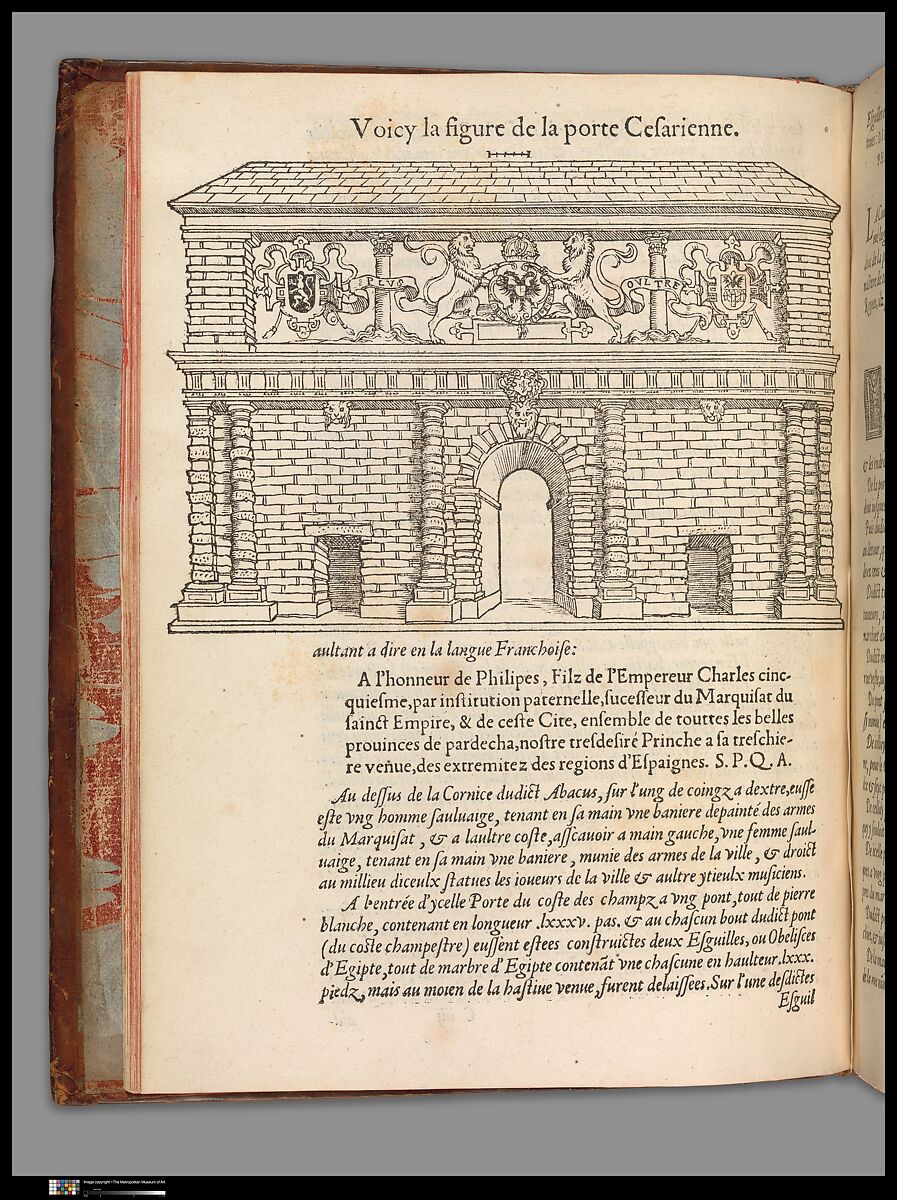 Voicy la figure de la porte Cesarienne.
PLVS
OVLTRE
aultant a dire en la langue Franchoise:
A l'honneur de Philipes, Filz de l'Empereur Charles cinc-
quiesme, par institution paternelle, sucesseur du Marquisat du
sainct Empire, & de ceste Cite, ensemble de touttes les belles
prouinces de pardecha, nostre tresdesiré Princhе a sa treschie-
re venue, des extremitez des regions d'Espaignes. S. P. Q. A.
Au dessus de la Cornice dudict Abacus, sur l'ung de coingz a dextre, eusse
este vng homme sauluaige, tenant en sa main vne baniere depainte des armes
du Marquisat, & a laultre coste, asscauoir a main gauche, vne femme saul-
uaige, tenant en sa main vne baniere, munie des armes de la ville, & droict
au millieu diceulx statues les ioueurs de la ville & aultre ytieulx musiciens.
A l'entrée d'ycelle Porte du coste des champz a vng pont, tout de pierre
blanche, contenant en longueur .lxxxv. pas. & au chascun bout dudict pont
(du coste champestre) eussent estees construictes deux Esguilles, ou Obelisces
d'Egipte, tout de marbre d'Egipte contenãt vne chascune en haulteur .lxxx.
piedz, mais au moien de la hastiue venue, furent delaissees. Sur l'une desdictes
Esguil
Image copyright The Metropolitan Museum of Art